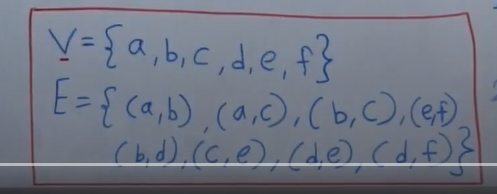 V={a,b,c,d,e,f}
E={(a,b),(a,c),(b,c),(e,f)
(b,d),(c,e),(d,e),(d,f)}